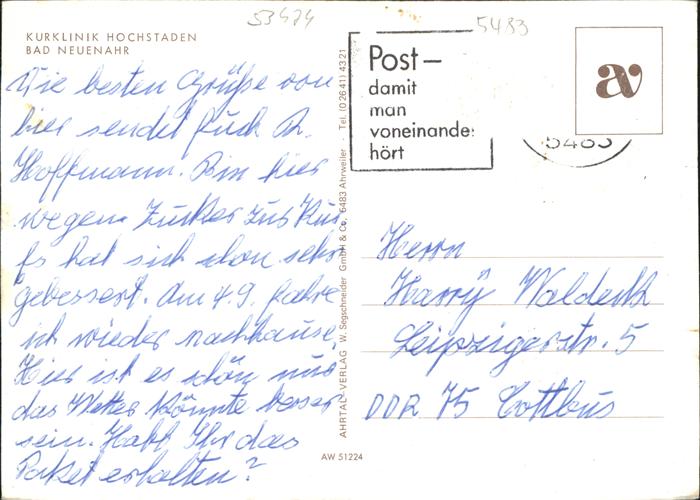 53474
5483
KURKLINIK HOCHSTADEN
BAD NEUENAHR
Die besten Grüße von
hier sendet Euch R.
Hoffmann. Bin hier
wegen Zucker zur Kur
Es hat sich schon sehr
gebessert. Am 4.9. fahre
ich wieder nachhause.
Hier ist es schön nur
das Wetter könnte besser
sein. Habt Ihr das
Paket erhalten?
AHRTAL-VERLAG W. Segschneider GmbH & Co. 5483 Ahrweiler - Tel. (02641) 4321
Post –
damit
man
voneinander
hört
av
5483
Herrn
Harry Waldeck
Leipzigerstr. 5
DDR 75 Cottbus
AW 51224